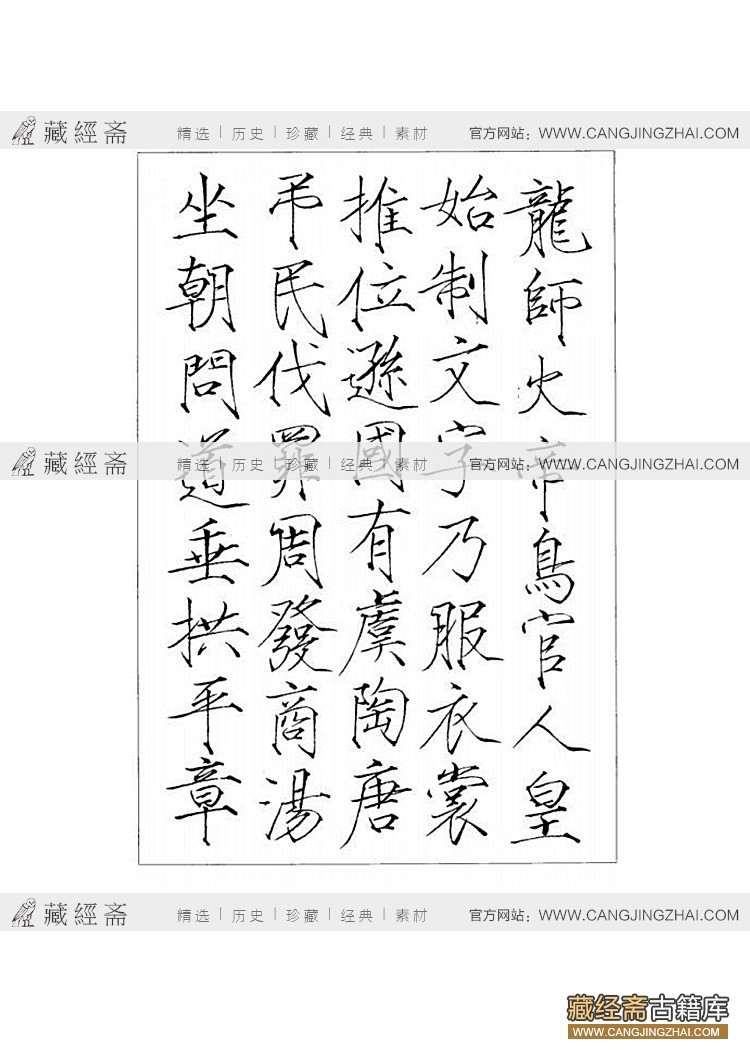 藏經斋 精选 历史 珍藏 经典 素材 官方网站：WWW.CANGJINGZHAI.COM
龍師火帝鳥官人皇
始制文字乃服衣裳
推位遜國有虞陶唐
弔民伐罪周發商湯
坐朝問道垂拱平章
藏經斋 精选 历史 珍藏 经典 素材 官方网站：WWW.CANGJINGZHAI.COM
藏經斋 精选 历史 珍藏 经典 素材 官方网站：WWW.CANGJINGZHAI.COM
藏经斋古籍库
WWW.CANGJINGZHAI.COM